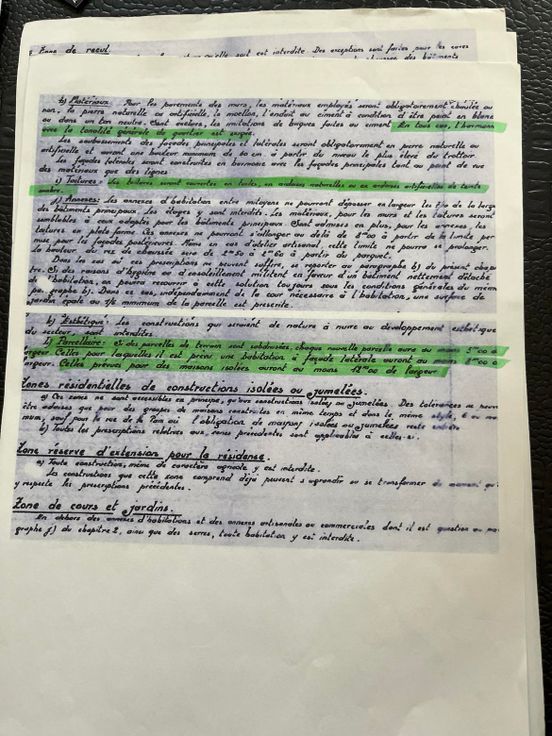 Zone de recul.
est interdite. Des exceptions sont faites pour les
des bâtiments
b) Matériaux: Pour les parements des murs, les matériaux employés seront obligatoirement: enduite ou
non, la pierre naturelle ou artificielle, le moellon, l'enduit au ciment à condition d'être peint en blanc
ou dans un ton neutre. Sont exclues, les imitations de briques faites au ciment. En tous cas, l'harmonie
avec la tonalité générale du quartier est exigée.
Les soubassements des façades principales et latérales seront obligatoirement en pierre naturelle ou
artificielle et auront une hauteur minimum de 60 cm à partir du niveau le plus élevé du trottoir.
Les façades latérales seront construites en harmonie avec les façades principales tant au point de vue
des matériaux que des lignes.
c) Toitures: Les toitures seront couvertes en tuiles, en ardoises naturelles ou en ardoises artificielles de teinte
sombre.
d) Annexes: Les annexes d'habitation entre mitoyens ne pourront dépasser en largeur les de la large
des bâtiments principaux. Les étages y sont interdits. Les matériaux, pour les murs et les toitures seront
semblables à ceux adoptés pour les bâtiments principaux. Sont admises en plus, pour les annexes, les
toitures en plate-forme. Ces annexes ne pourront s'allonger au delà de à partir de la limite per
mise pour les façades postérieures. Même en cas d'atelier artisanal, cette limite ne pourra se prolonger.
La hauteur du rez de chaussée sera de à à partir du parquet.
Dans les cas où ces prescriptions ne peuvent suffire, se reporter au paragraphe b) du présent chapi
tre. Si des raisons d'hygiène ou d'ensoleillement militent en faveur d'un bâtiment nettement détaché
de l'habitation, on pourra recourir à cette solution toujours sous les conditions générales du même
paragraphe b). Dans ce cas, indépendamment de la cour nécessaire à l'habitation, une surface de
jardin égale au minimum de la parcelle est prescrite.
h) Esthétique: Les constructions qui seraient de nature à nuire au développement esthétique
du secteur, sont interdites
i) Parcellaire: Si des parcelles de terrain sont subdivisées, chaque nouvelle parcelle aura au moins
largeur. Celles pour lesquelles il est prévu une habitation à façade latérale auront au moins
largeur. Celles prévues pour des maisons isolées auront au moins 12m00 de largeur.
Zones résidentielles de constructions isolées ou jumelées.
a) Ces zones ne sont accessibles en principe, qu'aux constructions isolées ou jumelées. Des tolérances ne pourr
être admises que pour des groupes de maisons construites en même temps et dans le même style,
mum, sauf pour la rue de l'obligation de maisons isolées ou jumelées reste entière.
b) Toutes les prescriptions relatives aux zones précédentes sont applicables à celles-ci.
Zone réserve d'extension pour la résidence.
a) Toute construction, même de caractère agricole y est interdite.
Les constructions que cette zone comprend déjà peuvent s'agrandir ou se transformer du moment qu'
y respecte les prescriptions précédentes.
Zone de cours et jardins.
En dehors des annexes d'habitations et des annexes artisanales ou commerciales dont il est question au pa
graphe f) du chapitre 2, ainsi que des serres, toute habitation y est interdite.